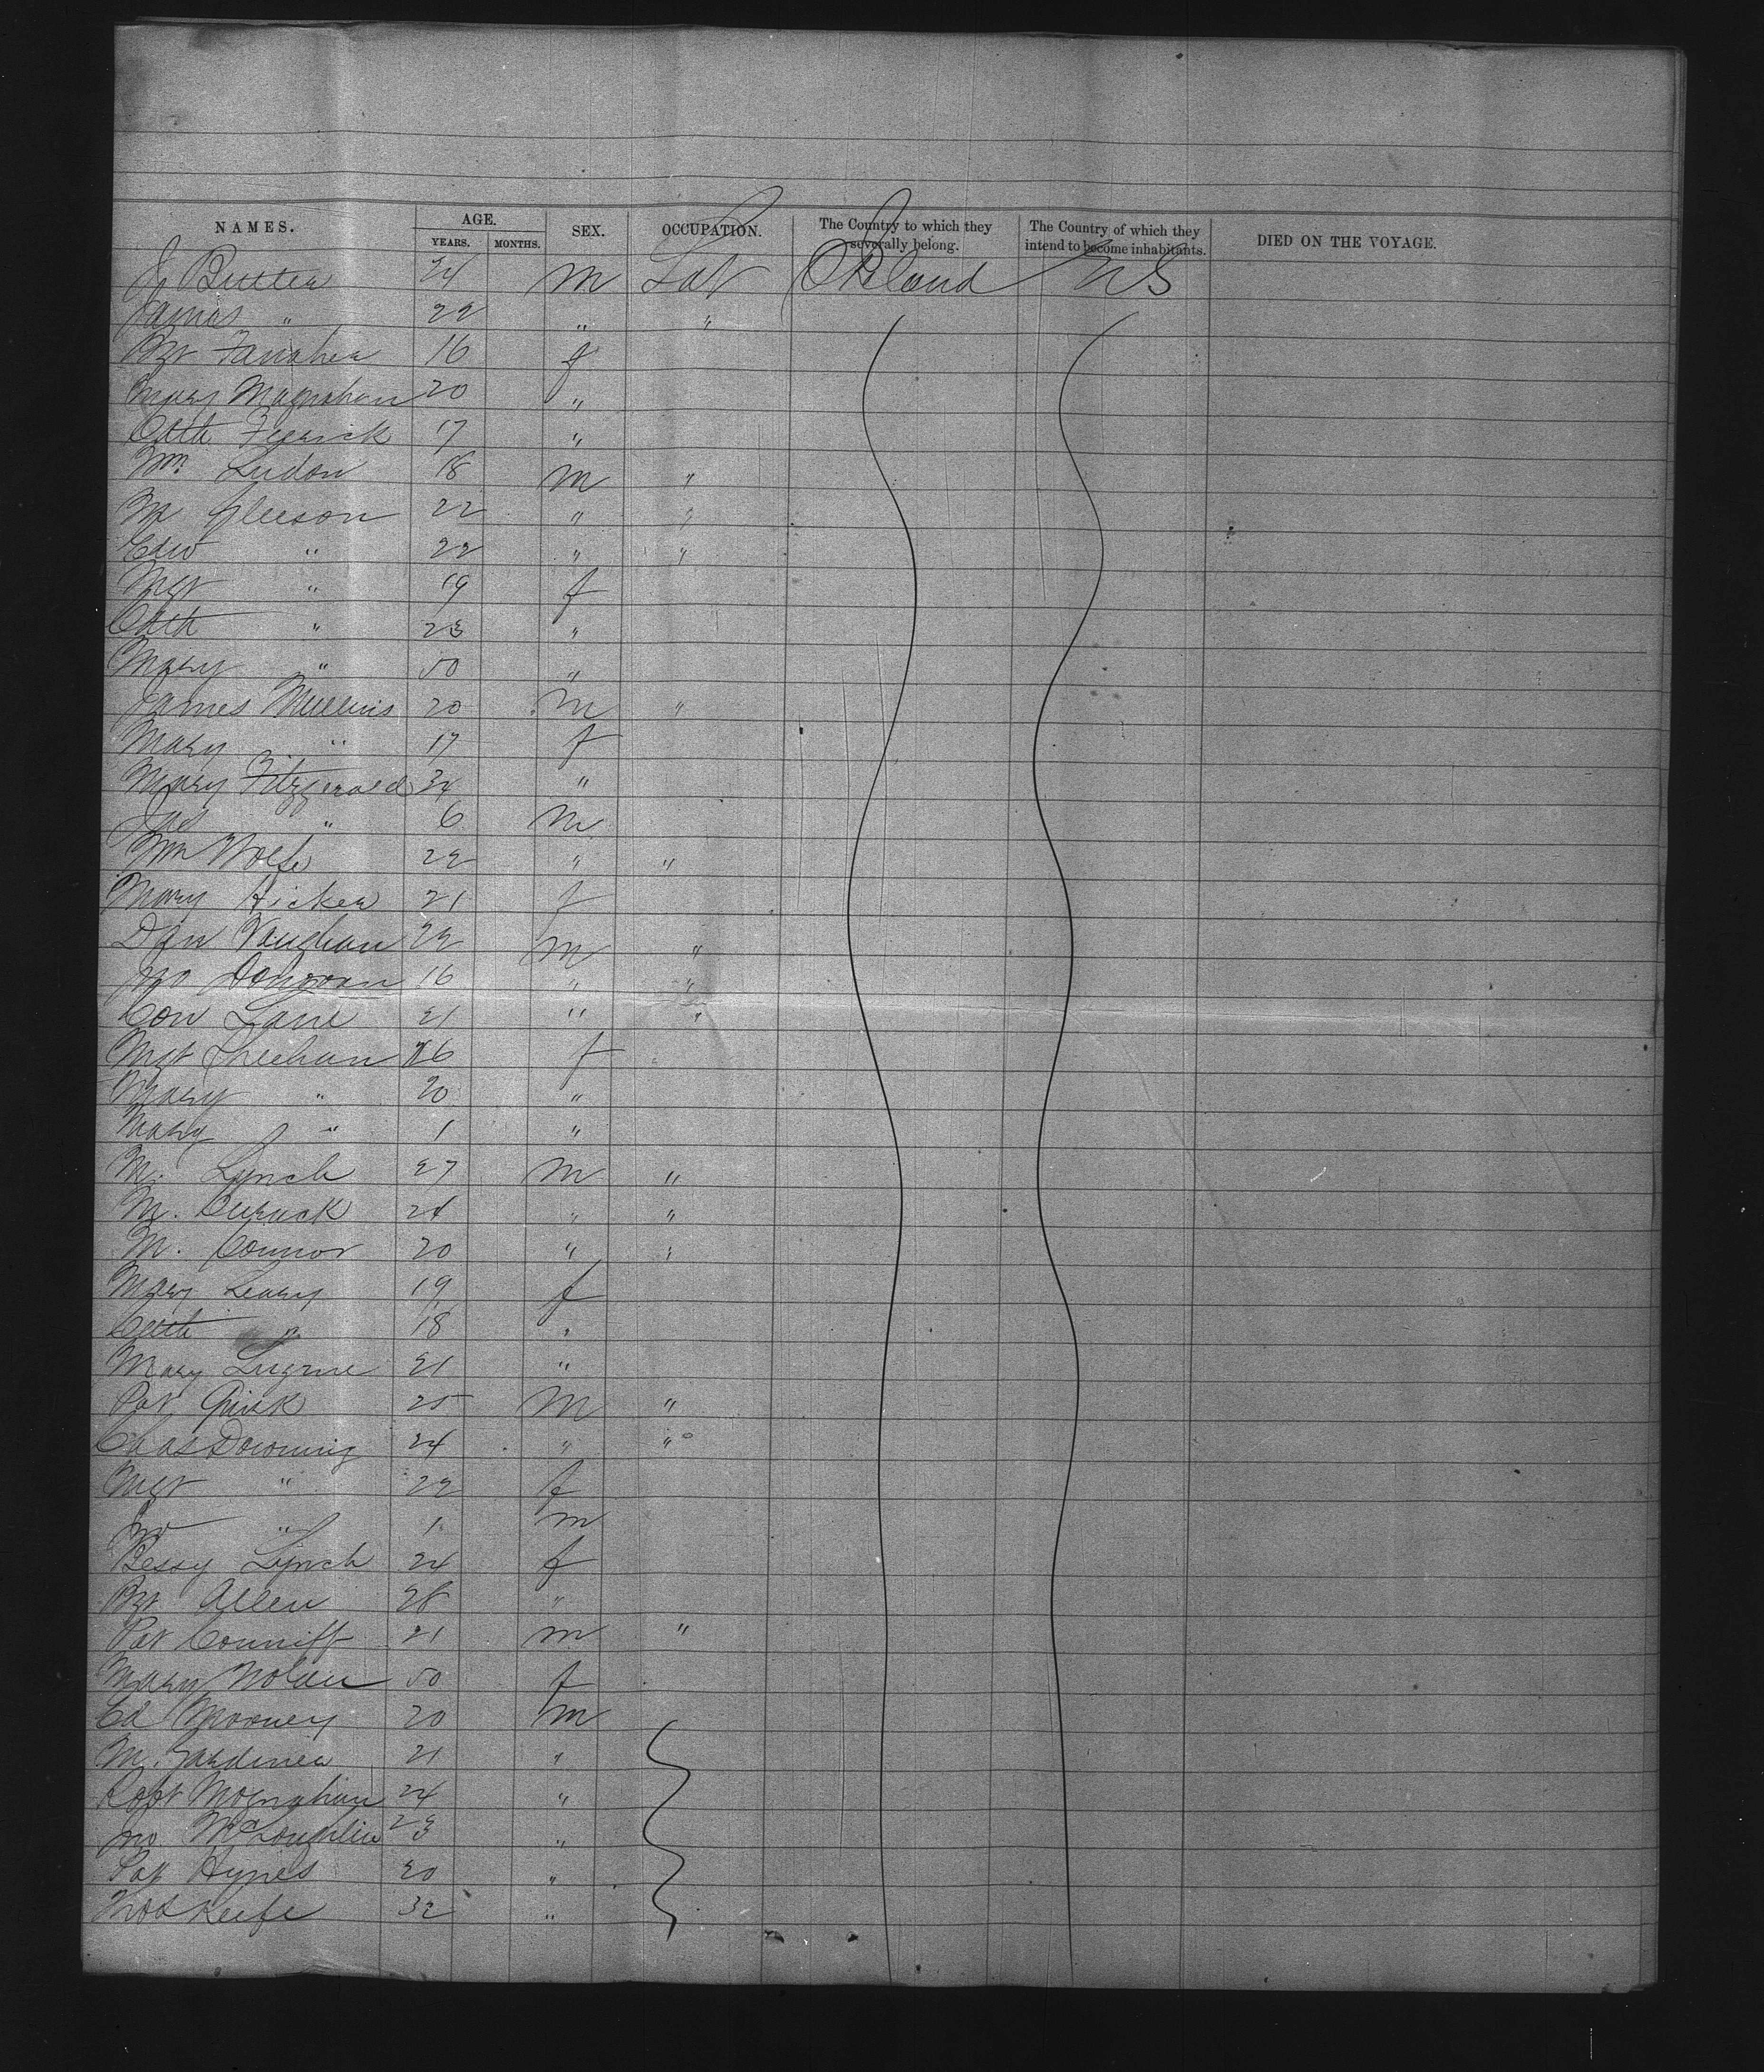 NAMES. AGE. SEX. OCCUPATION. The Country to which they severally belong. The Country of which they intend to become inhabitants. DIED ON THE VOYAGE.
YEARS. MONTHS.
J Butler 24 m Lab Ireland US
James " 22 " "
16 f
Mary 20 "
Cath 17 "
Wm 18 m "
M Gleeson 22 " "
Edw " 22 " "
Mgt " 19 f
Cath " 23 "
Mary " 50 "
James Mullins 20 m "
Mary " 17 f
Mary Fitzgerald 34 "
" 6 m
Wm Wolfe 22 " "
Mary Hickea 21 f
Dan Vaughan 22 m "
Jno Donovan 16 " "
Con Lane 21 " "
Mgt Sheehan 16 f
Mary " 20 "
Mary " 1 "
M. Lynch 27 m "
M. Cusack 24 " "
M. Connor 20 " "
Mary Leary 19 f
Cath " 18 "
Mary 21 "
Pat Quirk 25 m "
Chas Downing 24 " "
Mgt " 22 f
Jno " 1 m
Bessy Lynch 24 f
Allen 28 "
Pat Conniff 21 m "
Mary Nolan 50 f
Ed Mooney 20 m
M. Gardiner 21 "
Robt Monaghan 24 "
Jno McLoughlin 23 "
Pat Hynes 20 "
Thos Keefe 32 "